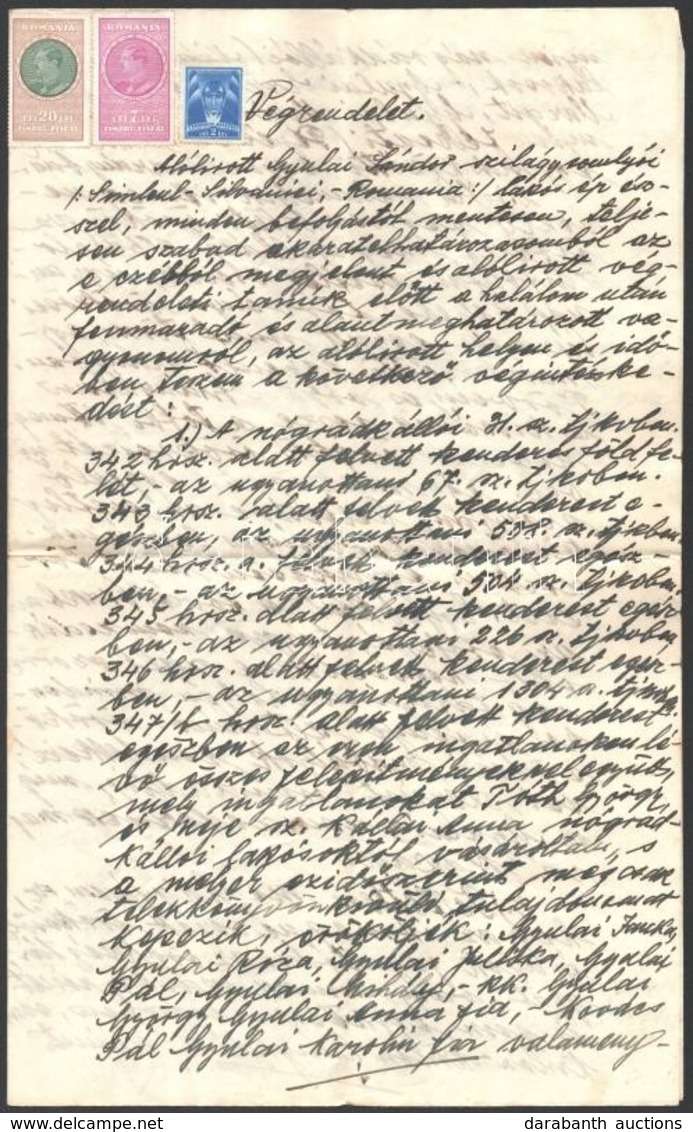 ROMANIA ROMANIA
LEI 20 LEI LEI 7 LEI LEI 2 LEI
TIMBRU FISCAL TIMBRU FISCAL
Végrendelet.
Alólirott Gyulai Sándor szilágysomlyói
/: Simleul-Silvaniei, - Romania :/ lakós ép ész-
szel, minden befolyástól mentesen, telje-
sen szabad akaratelhatározásomból az
e czélból megjelent és alólirott vég-
rendeleti tanuk előtt a halálom után
fenmaradó és alant meghatározott va-
gyonomról, az alólirott helyen és idő-
ben teszem a következő végintézke-
dést:
1.) A nógrádkállói 31. sz. tjkvben.
342 hrsz. alatt felvett kenderes föld fe-
lét, - az ugyanottani 67. sz. tjkvben.
343 hrsz. alatt felvett kenderest e-
gészben, az ugyanottani sz. tjkvben.
344 hrsz. a. felvett kenderest egész-
ben, - az ugyanottani 504 sz. tjkvben.
345 hrsz. alatt felvett kenderest egész-
ben, - az ugyanottani 226 sz. tjkvben,
346 hrsz. alatt felvett kenderest egész-
ben, - az ugyanottani 1304 a. tjkvben
347/b hrsz. alatt felvett kenderest
egészben az ezen ingatlanokon lé-
vő összes felépitményekkel együtt,
mely ingatlanokat Tóth György
és neje sz. Kállai Anna nógrád-
kállói lakósoktól vásároltam, s
a melyek ezidőszerint még csak
telekkönyvönkivüli tulajdonomat
képezik, örököljék: Gyulai Janka,
Gyulai Róza, Gyulai Ilka, Gyulai
Pál, Gyulai Mihály, - kk. Gyulai
György Gyulai Anna fia, - Kovács
Pál Gyulai Karolin fia valameny-
darabanth auctions